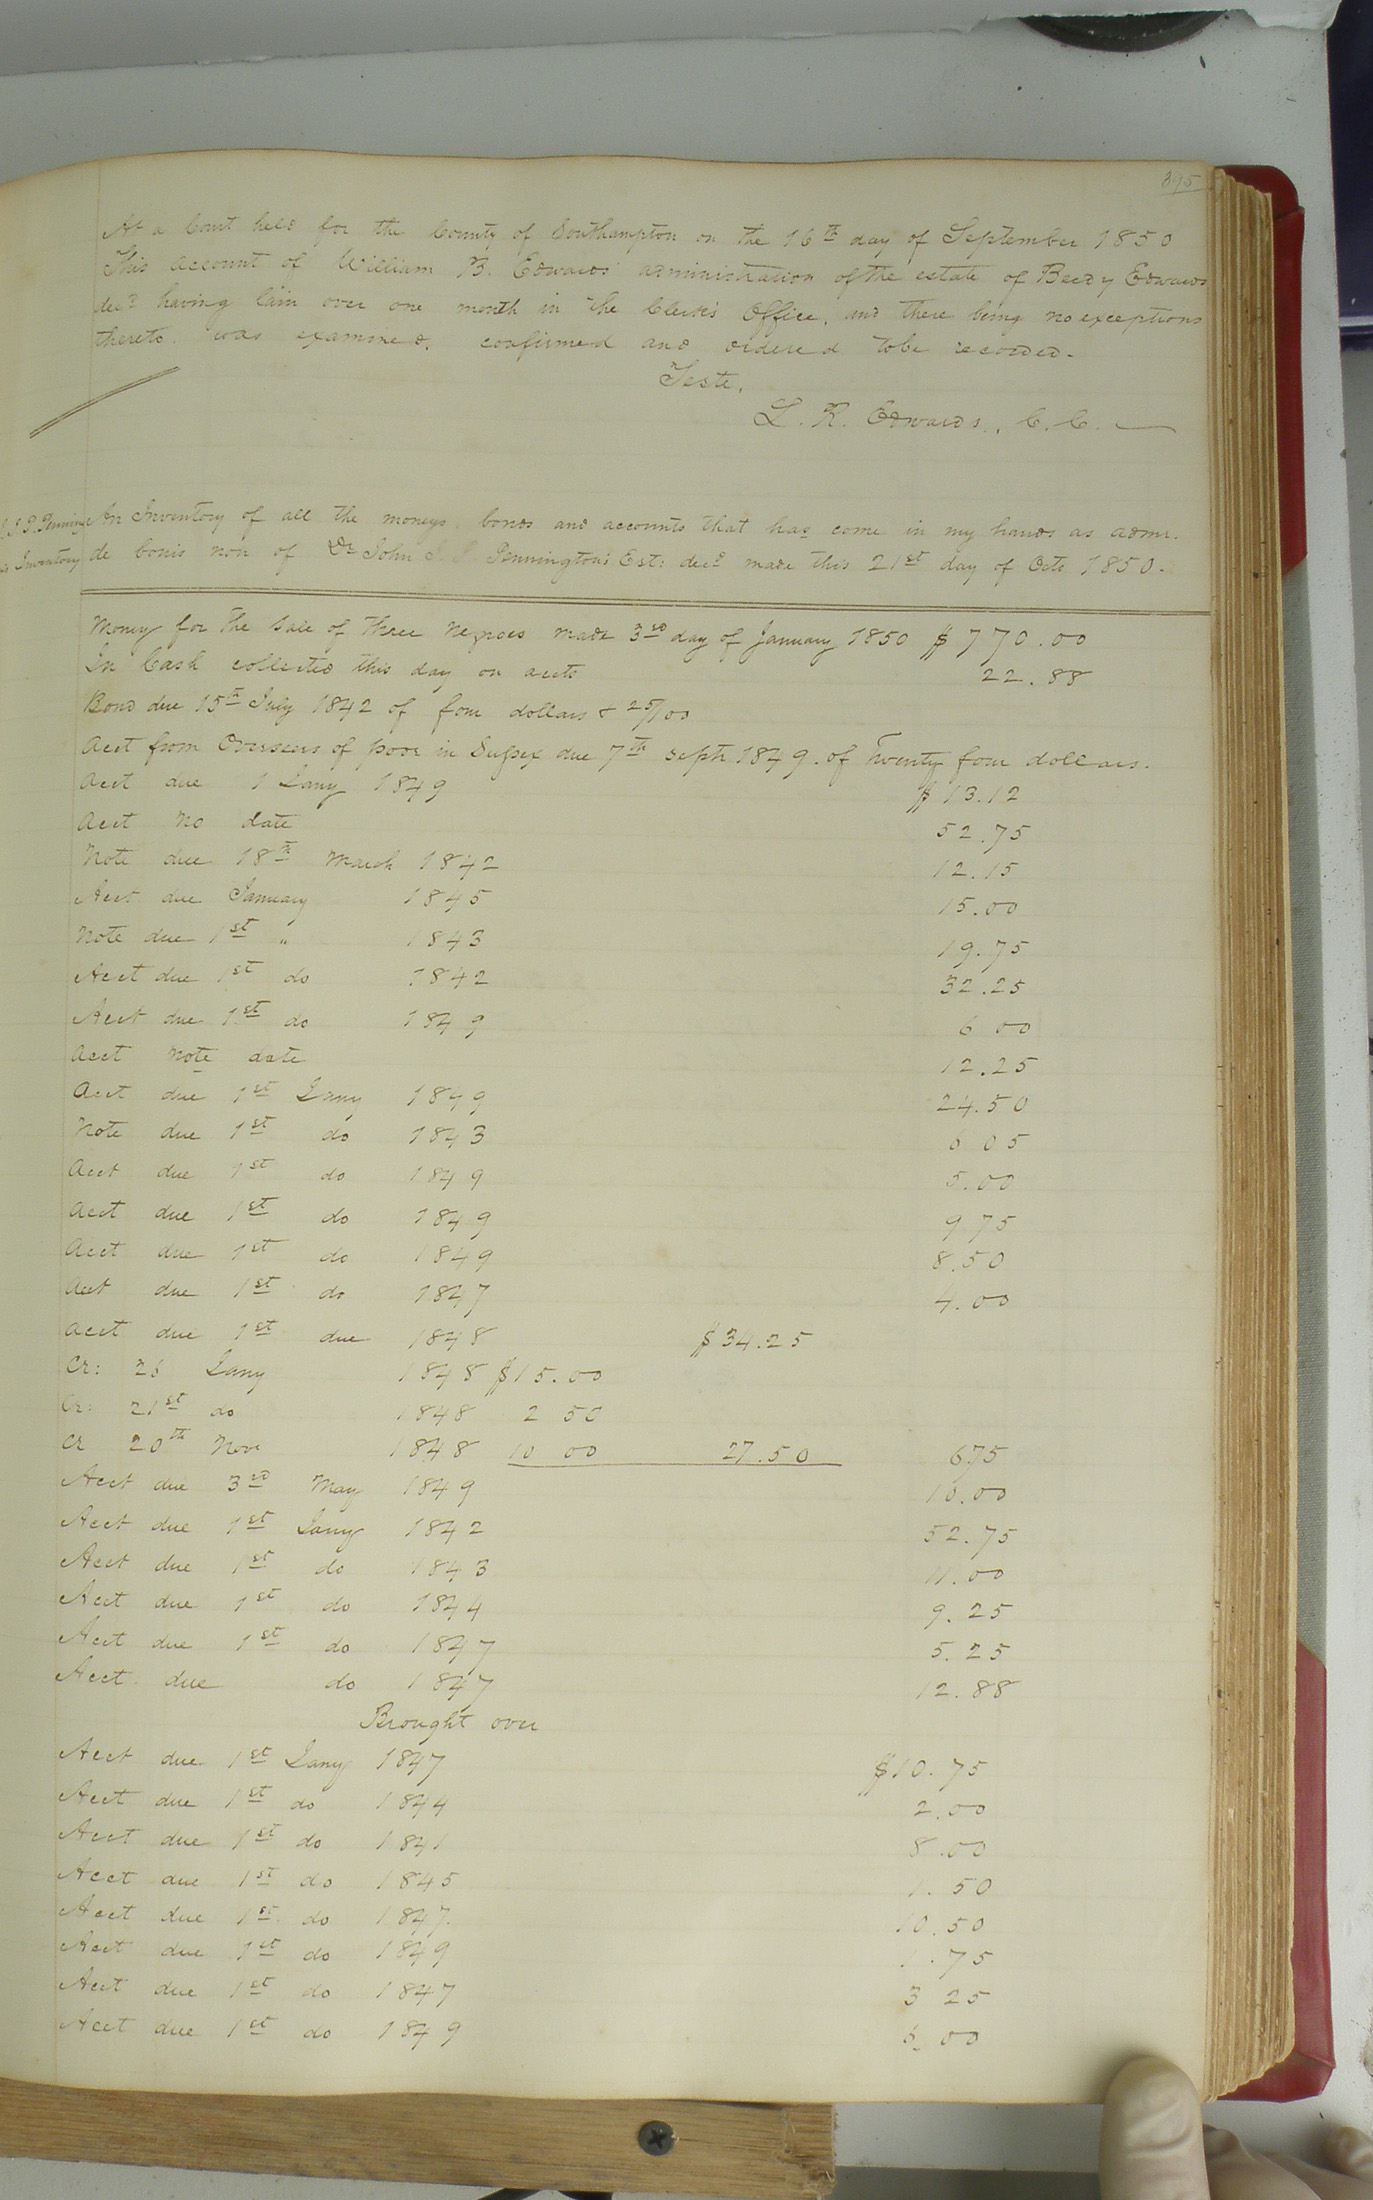 395
At a Court held for the County of Southampton on the 16th day of September 1850
This account of William B. Edwards administration of the estate of Beedy Edwards
decd having lain over one month in the Clerk's Office, and there being no exceptions
thereto. was examined, confirmed and ordered to be recorded.
Teste,
L. R. Edwards, C. C.
An Inventory of all the moneys, bonds and accounts that has come in my hands as admr.
Inventory de bonis non of Dr John Pennington's Est: decd made this 21st day of Octo 1850.
Money for the sale of three negroes made 3rd day of January 1850 $770.00
In Cash collected this day on accts 22.88
Bond due 15th July 1842 of four dollars & 25/100
Acct from Overseers of poor in Sussex due 7th Sept 1849. of Twenty four dollars.
Acct due 1 Jany 1849 $13.12
Acct no date 52.75
Note due 18th March 1842 12.15
Acct due January 1845 15.00
Note due 1st " 1843 19.75
Acct due 1st do 1842 32.25
Acct due 1st do 1849 6 00
Acct Note date 12.25
Acct due 1st Jany 1849 24.50
Note due 1st do 1843 6 05
Acct due 1st do 1849 5.00
Acct due 1st do 1849 9 75
Acct due 1st do 1849 8.50
Acct due 1st do 1847 4.00
Acct due 1st due 1848 $34.25
Cr: 26 Jany 1848 $15.00
Cr: 21st do 1848 2 50
Cr 20th Nov 1848 10 00 27.50 6.75
Acct due 3rd May 1849 10.00
Acct due 1st Jany 1842 52.75
Acct due 1st do 1843 11.00
Acct due 1st do 1844 9.25
Acct due 1st do 1847 5.25
Acct due do 1847 12.88
Brought over
Acct due 1st Jany 1847 $10.75
Acct due 1st do 1844 2.00
Acct due 1st do 1841 8.00
Acct due 1st do 1845 1.50
Acct due 1st do 1847. 10.50
Acct due 1st do 1849 .75
Acct due 1st do 1847 3 25
Acct due 1st do 1849 6.00